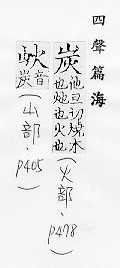 四聲篇海
炭 他旦切燒木
也 也火也
(火部、p478)
音
炭
(山部、p405)